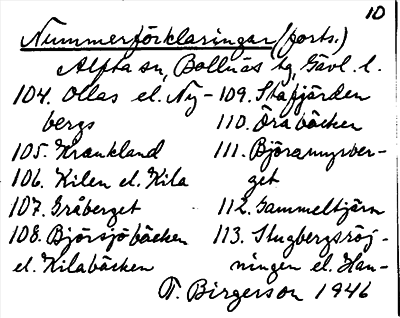 10
Nummerförklaringar (forts.)
Alfta sn, Bollnäs tg, Gävl. l.
104. Ollas el. Ny-
bergs
105. Krankland
106. Kilen el. Kila
107. Gråberget
108. Björsjöbäcken
el. Kilabäcken
109. Stafjärden
110. Öra bäcken
111. Björnmyrber-
get
112. Gammeltjärn
113. Stugbergsröj-
ningen el. Han-
T. Birgerson 1946